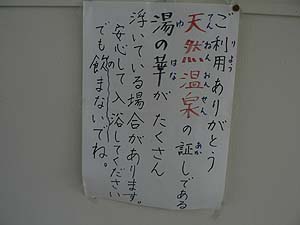 ご利用ありがとう
天然温泉の証しである
湯の華がたくさん
浮いている場合があります。
安心して入浴してください
でも飲まないでね。